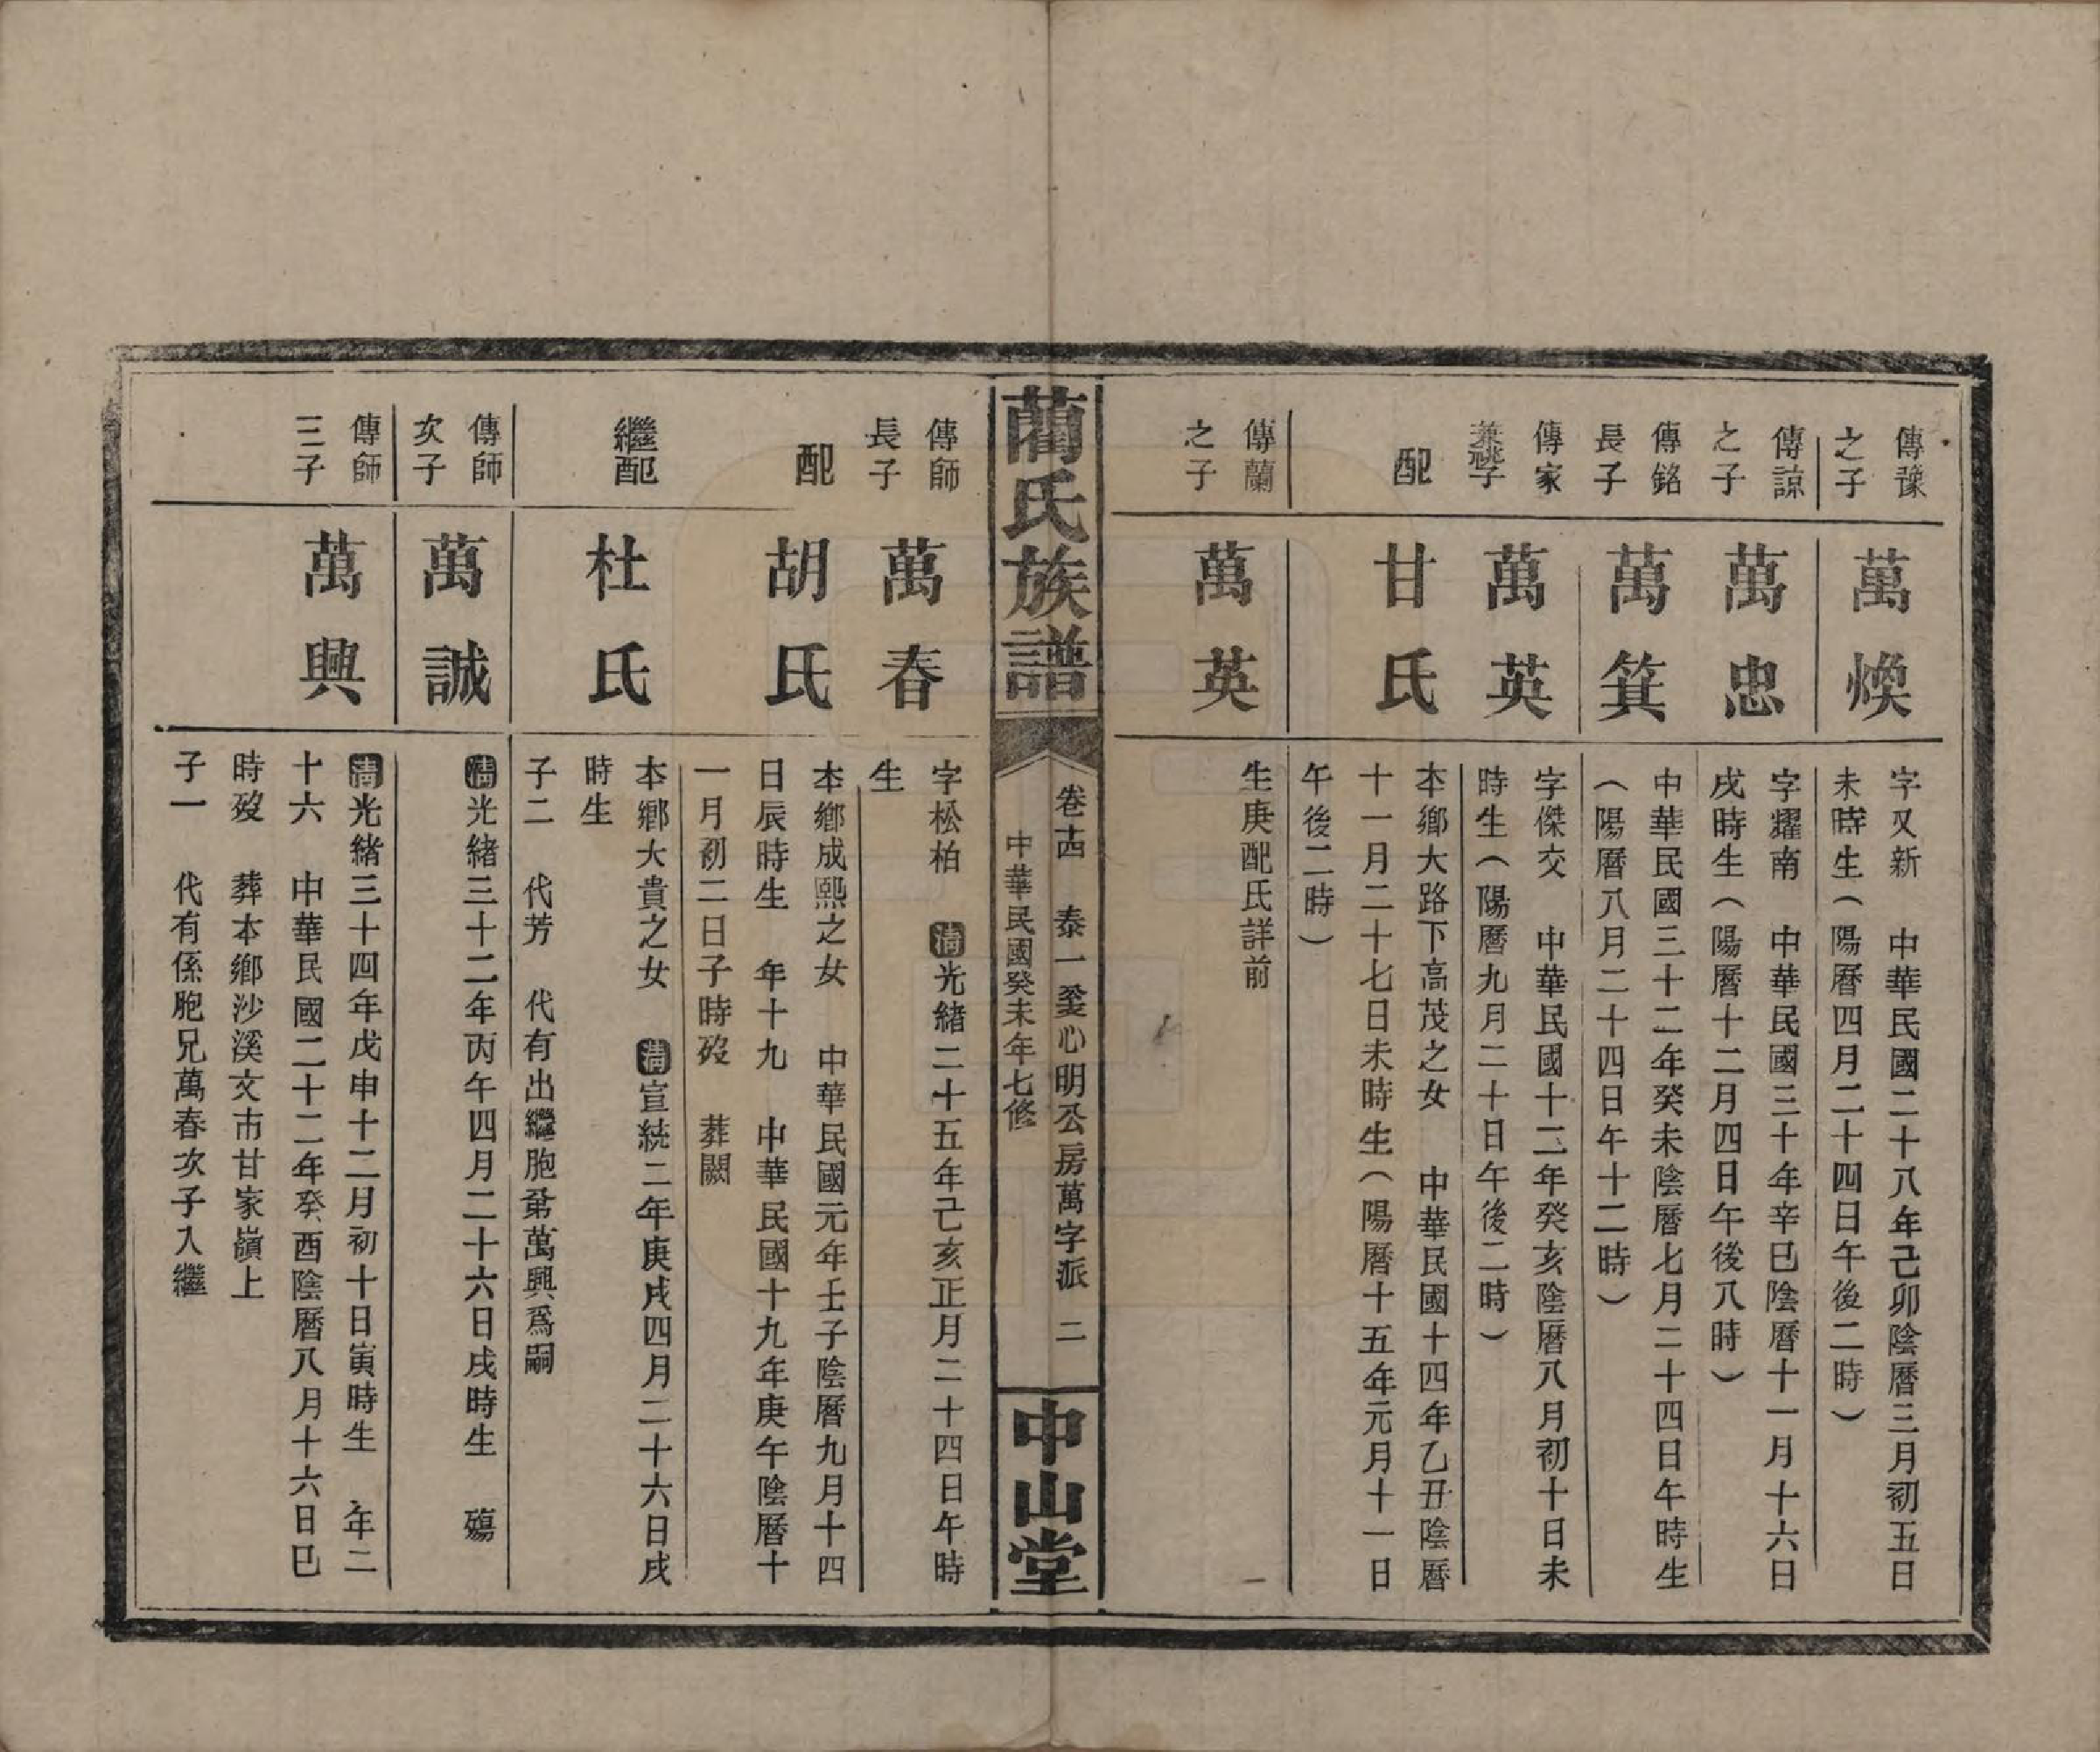 傳豫
之子
萬煥
字又新　中華民國二十八年己卯陰曆三月初五日
未時生（陽曆四月二十四日午後二時）
傳諒
之子
萬忠
字耀南　中華民國三十年辛巳陰曆十一月十六日
戌時生（陽曆十二月四日午後八時）
傳銘
長子
萬箕
中華民國三十二年癸未陰曆七月二十四日午時生
（陽曆八月二十四日午十二時）
傳家
兼祧子
萬英
字傑交　中華民國十二年癸亥陰曆八月初十日未
時生（陽曆九月二十日午後二時）
配
甘氏
本鄉大路下高茂之女　中華民國十四年乙丑陰曆
十一月二十七日未時生（陽曆十五年元月十一日
午後二時）
傳蘭
之子
萬英
生庚配氏詳前
藺氏族譜
卷十四　泰一㙋心明公房萬字派　二
中華民國癸未年七修
中山堂
傳師
長子
萬春
字松柏　清光緒二十五年己亥正月二十四日午時
生
配
胡氏
本鄉成熙之女　中華民國元年壬子陰曆九月十四
日辰時生　年十九　中華民國十九年庚午陰曆十
一月初二日子時歿　葬闕
繼配
杜氏
本鄉大貴之女　清宣統二年庚戌四月二十六日戌
時生
子二　代芳　代有出繼胞弟萬興爲嗣
傳師
次子
萬誠
清光緒三十二年丙午四月二十六日戌時生　殤
傳師
三子
萬興
清光緒三十四年戊申十二月初十日寅時生　年二
十六　中華民國二十二年癸酉陰曆八月十六日巳
時歿　葬本鄉沙溪文市甘家嶺上
子一　代有係胞兄萬春次子入繼